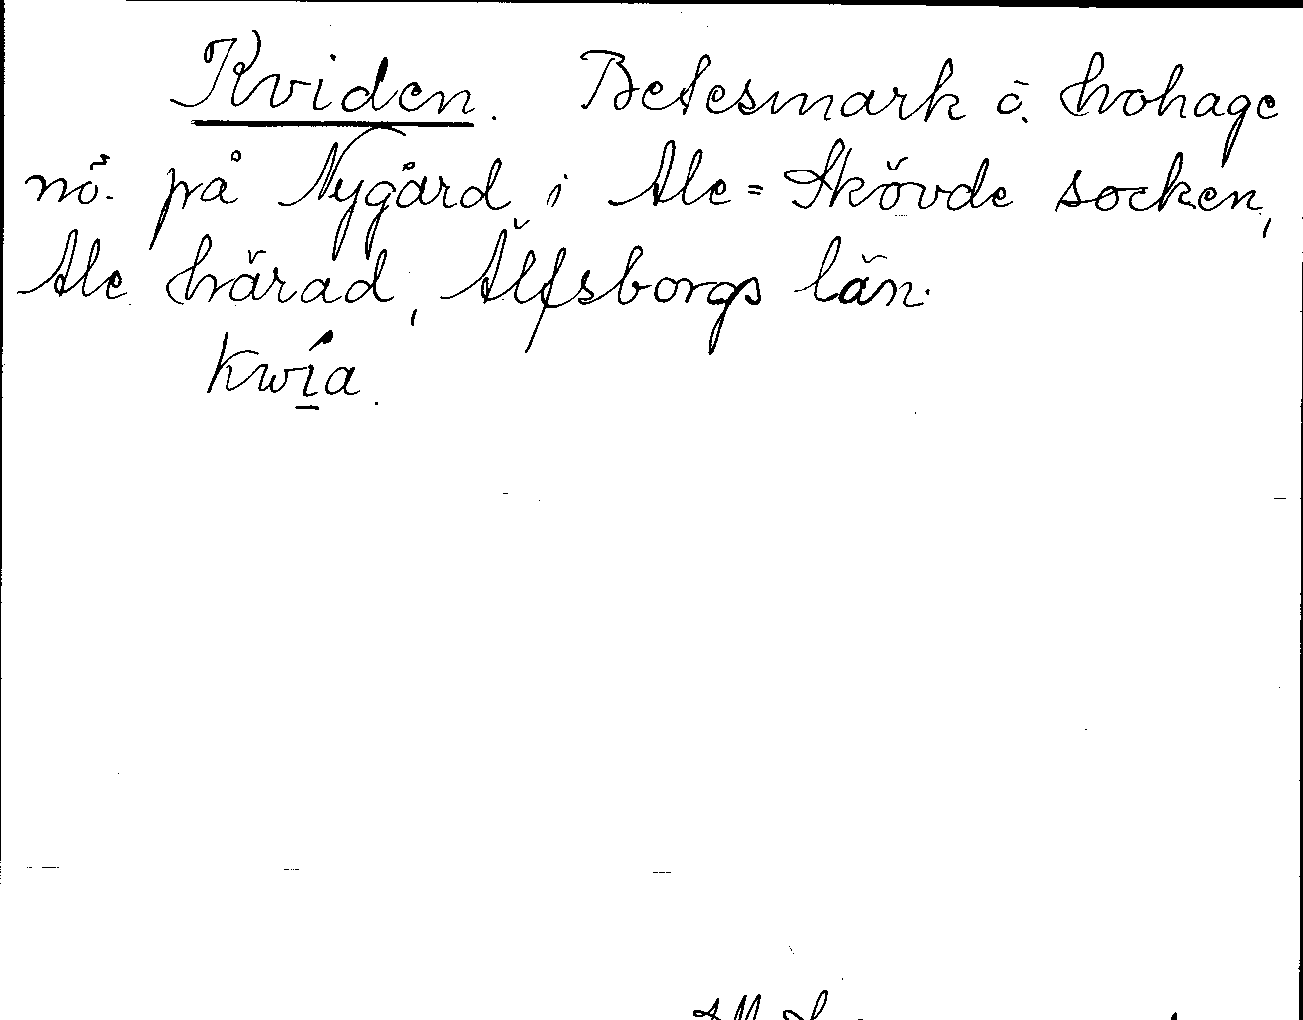 Kviden. Betesmark ö. hrohage
nö. på Nygård i Ale=Skövde socken,
Ale härad, Älfsborgs län.
Kwía.